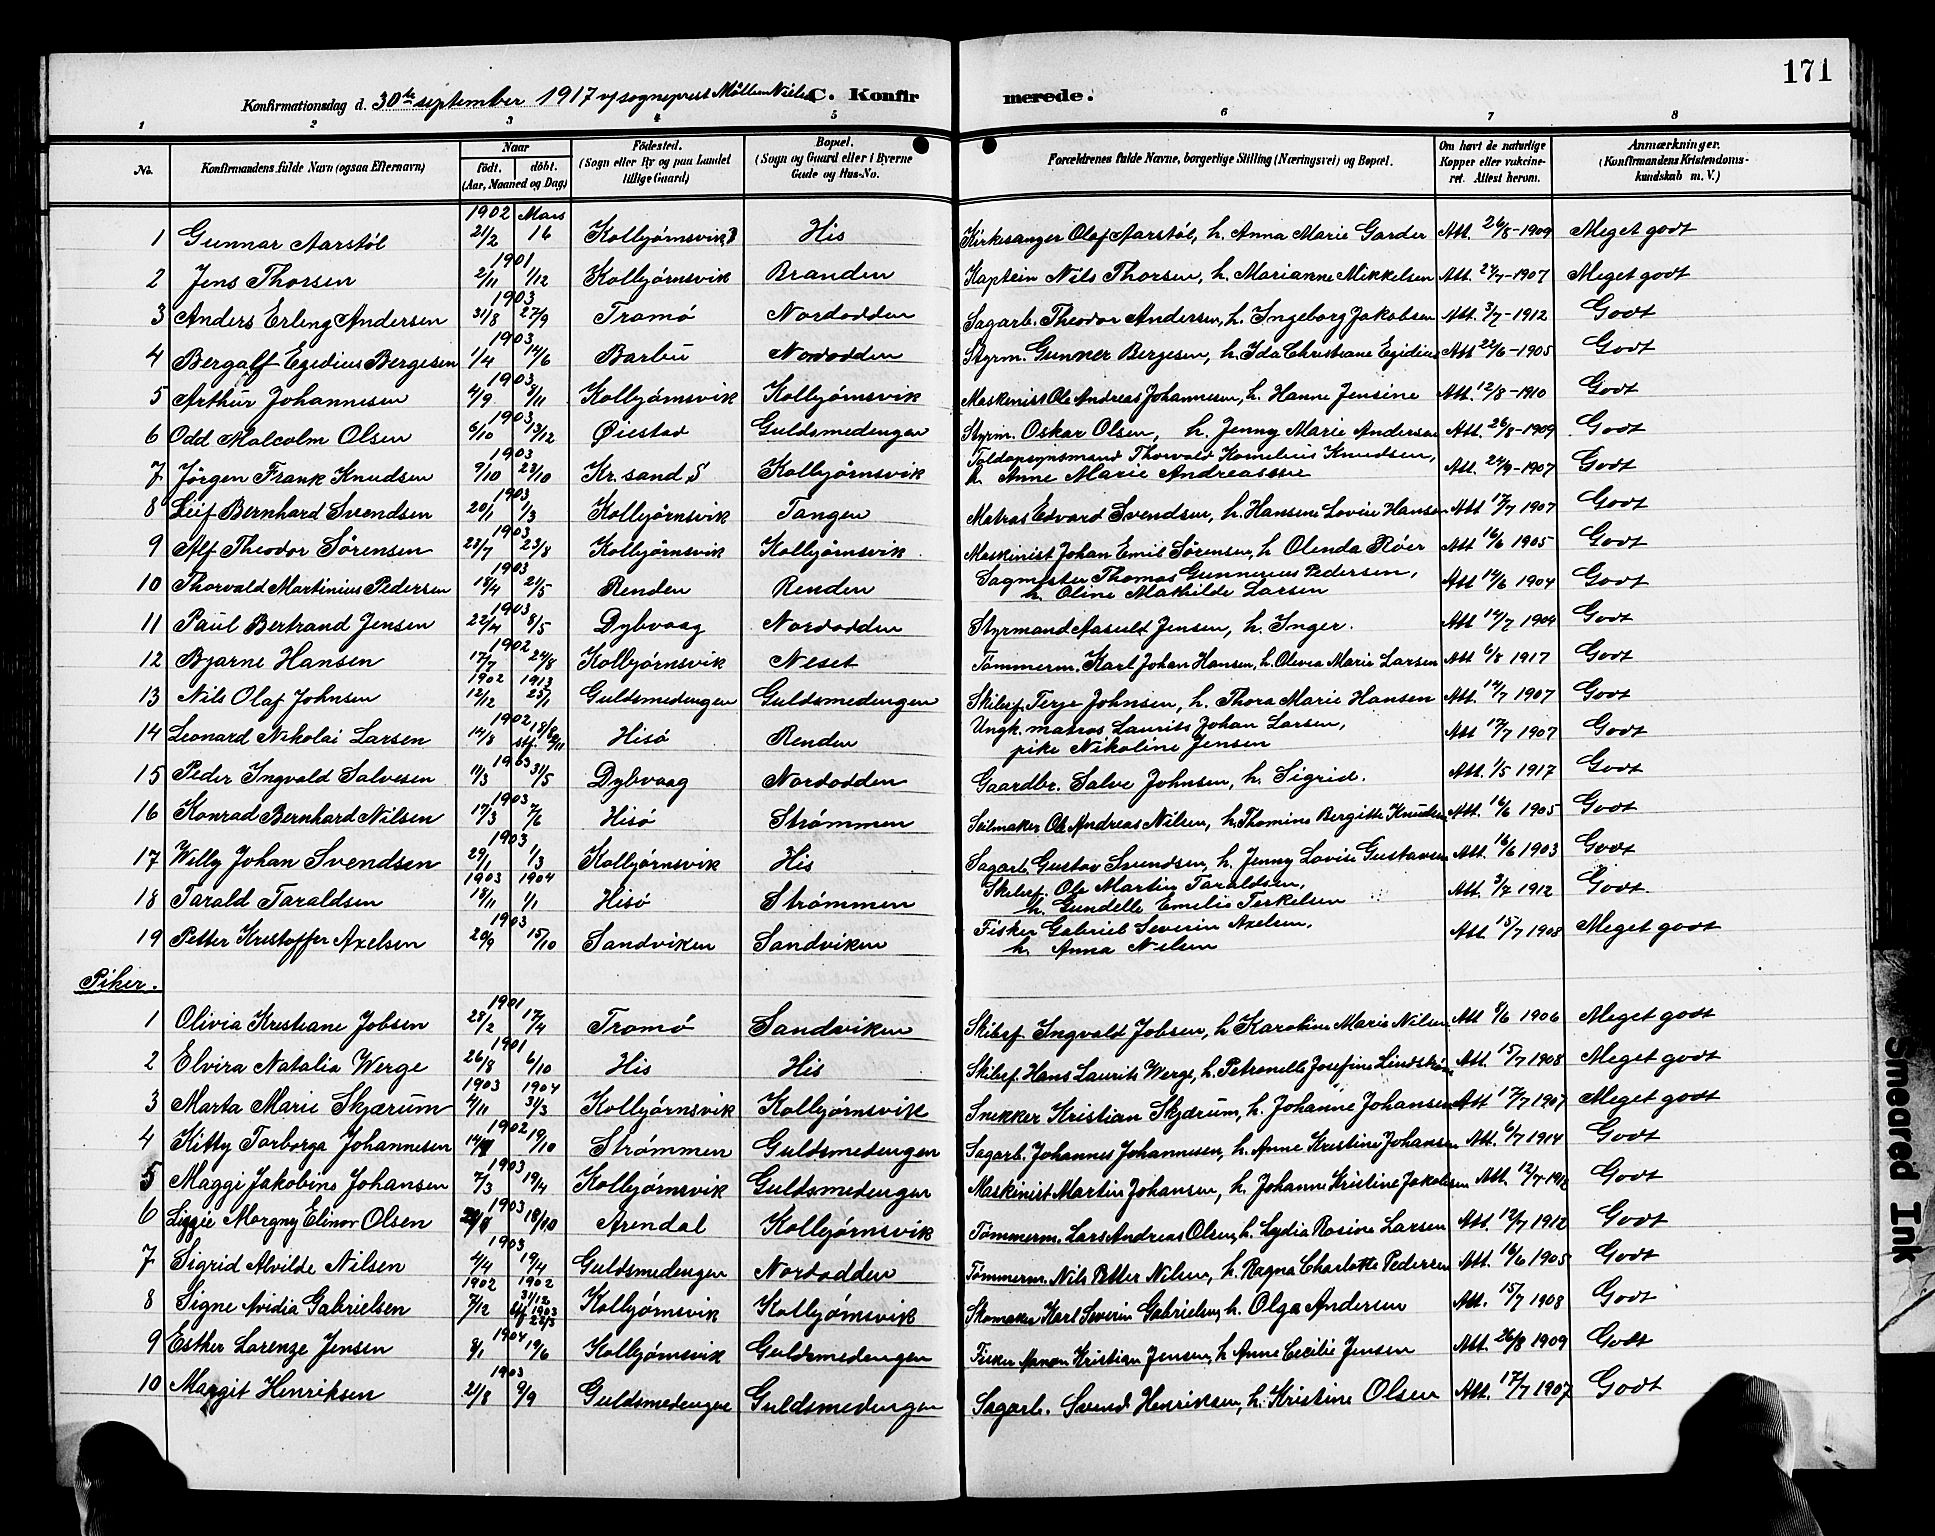 171
Konfirmationsdag d. 30te september 1917 v/ sogneprest C. Konfirmerede.
1 2 3 4 5 6 7 8
No. Konfirmandens fulde Navn (ogsaa Efternavn) Naar født, døbt. (Aar, Maaned og Dag) Fødested. (Sogn eller By og paa Landet tillige Gaard) Bopæl. (Sogn og Gaard eller i Byerne Gade og Hus-No. Forældrenes fulde Navne, borgerlige Stilling (Næringsvei) og Bopæl. Om havt de naturlige Kopper eller vakcineret. Attest herom. Anmærkninger. (Konfirmandens Kristendomskundskab m. V.)
1 Gunnar Aarstøl 1902 21/2 Mars 16 Kolbjørnsvik His Kirkesanger Olaf Aarstøl, h. Anna Marie Garder Att. 26/8-1909 Meget godt
2 Jens Thorsen 1901 2/11 1/12 Kolbjørnsvik Branden Kaptein Nils Thorsen, h. Marianne Mikkelsen Att. 24/7-1907 Meget godt
3 Anders Erling Andersen 1903 31/8 27/9 Tromø Nordodden Sagarb. Theodor Andersen, h. Ingeborg Jakobsen Att. 3/7-1912 Godt
4 Bergalf Egidius Bergesen 1903 1/4 14/6 Barbu Nordodden Styrm. Gunner Bergesen, h. Ida Christiane Egidius Att 22/6-1905 Godt
5 Arthur Johannesen 1903 4/9 8/11 Kolbjørnsvik Kolbjørnsvik Maskinist Ole Andreas Johannesen, h. Hanne Jensine Att. 12/8-1910 Godt
6 Odd Malcolm Olsen 1903 6/10 13/12 Øiestad Guldsmedengen Styrm. Oskar Olsen, h. Jenny Marie Andersen Att. 26/8-1909 Godt
7 Jørgen Frank Knudsen 1903 9/10 23/10 Kr.sand S Kolbjørnsvik Toldopsynsmand Thorvald Kornelius Knudsen, h. Anne Marie Andreassen Att. 24/9-1907 Godt
8 Leif Bernhard Svendsen 1903 20/1 1/3 Kolbjørnsvik Tangen Matros Edvard Svendsen, h. Hansine Lovise Hansen Att 17/7 1907 Godt
9 Alf Theodor Sørensen 1903 23/7 23/8 Kolbjørnsvik Kolbjørnsvik Maskinist Johan Emil Sørensen, h Olenda Røer Att 16/6 1905 Godt
10 Thorvald Martinius Pedersen 1903 18/4 21/5 Renden Renden Sagmester Thomas Gunnerius Pedersen, h. Oline Mathilde Larsen Att 14/6 1904 Godt
11 Paul Bertrand Jensen 1903 22/4 8/5 Dybvaag Nordodden Styrmand Aasult Jensen, h. Inger. Att 14/7 1904 Godt
12 Bjarne Hansen 1902 17/7 24/8 Kolbjørnsvik Neset Tømmerm. Karl Johan Hansen, h. Olevia Marie Larsen Att 6/8 1917 Godt
13 Nils Olaf Johnsen 1902 12/12 1913 25/1 Guldsmedengen Guldsmedengen Skibsf. Terje Johnsen, h. Thora Marie Hansen Att. 14/7 1907 Godt
14 Leonard Nikolai Larsen 1902 14/8 18/8 stf. 2/11 Hisø Renden Ungk. matros Laurits Johan Larsen, pike Nikoline Jensen Att 17/7 1907 Godt
15 Peder Ingvald Salvesen 1903 11/3 31/5 Dybvaag Nordodden Gaardbr. Salve Johnsen, h. Sigrid. Att. 1/5 1917 Godt
16 Konrad Bernhard Nilsen 1903 17/3 7/6 Hisø Strømmen Seilmaker Ole Andreas Nilsen, h. Thomine Bergitte Knudsen Att. 16/6 1905 Godt
17 Willy Johan Svendsen 1903 29/1 1/3 Kolbjørnsvik His Sagarb. Gustav Svendsen, h. Jenny Lovise Gustavsen Att. 16/6 1903 Godt
18 Tarald Taraldsen 1903 18/11 1904 1/1 Hisø Strømmen Skibsf. Ole Martin Taraldsen, h. Gundelle Emilie Terkelsen Att. 3/7 1912 Godt.
19 Petter Kristoffer Axelsen 1903 20/9 15/10 Sandviken Sandviken Fisker Gabriel Severin Axelsen, h. Anna Nilsen Att. 15/7 1908 Meget godt
Piker.
1 Olivia Kristiane Jobsen 1901 28/2 17/4 Tromø Sandviken Skibsf. Ingvald Jobsen, h Karoline Marie Nilsen Att 8/6 1906 Meget godt
2 Elvira Natalia Werge 1901 26/8 6/10 His His Skibsf. Hans Laurits Werge, h. Petronelle Josefine Lindstrøm Att. 15/7 1908 Meget godt
3 Marta Marie Skjærum 1903 4/11 1904 31/3 Kolbjørnsvik Kolbjørnsvik Snekker Kristian Skjærum, h. Johanne Johansen Att 17/7 1907 Meget godt
4 Kitty Torborga Johannesen 1902 19/10 Strømmen Guldsmedengen Sagarb. Johannes Johannesen, h. Anne Kristine Johansen Att. 6/7 1914 Godt
5 Maggi Jakobine Johansen 1903 7/3 19/4 Kolbjørnsvik Guldsmedengen Maskinist Martin Johansen, h. Johanne Kristine Jakobsen Att. 12/7-1912 Godt
6 Lizzie Morgny Elinor Olsen 1903 18/10 Arendal Kolbjørnsvik Tømmerm. Lars Andreas Olsen, h. Lydia Rosine Larsen Att. 12/7 1912 Godt
7 Sigrid Alvilde Nilsen 1903 4/4 19/4 Guldsmedengen Nordodden Tømmerm. Nils Petter Nilsen, h. Ragna Charlotte Pedersen Att. 16/6 1905 Godt
8 Signe Avidia Gabrielsen 1902 7/12 1902 31/12 stf 1903 22/3 Kolbjørnsvik Kolbjørnsvik Skomaker Karl Severin Gabrielsen, h. Olga Andersen Att. 15/7 1908 Godt
9 Esther Lorenze Jensen 1904 9/1 19/6 Kolbjørnsvik Guldsmedengen Fisker Aanon Kristian Jensen, h Anne Cecilie Jensen Att. 26/8 1909 Godt
10 Margit Henriksen 1903 21/8 9/9 Guldsmedengen Guldsmedengen Sagarb. Svend Henriksen, h. Kristine Olsen Att. 17/7 1907 Godt
Smeared Ink